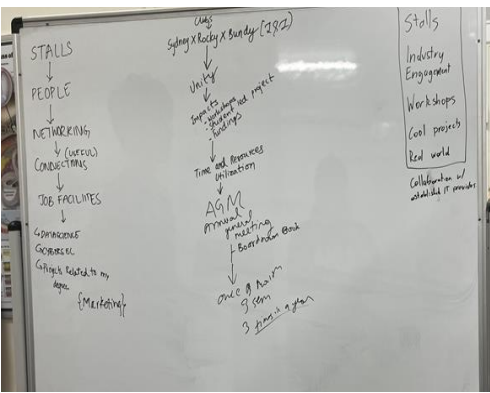 STALLS
PEOPLE
NETWORKING
(USEFUL)
CONNECTIONS
JOB FACILITES
DATASCIENCE
CYBERSEC
Projects Related to my
degree
{Marketing}
Clubs
Sydney X Rocky X Bundy
Unity
Impacts
- Workshops
- Student led project
- Fundings
Time and Resources
Utilization
AGM
Annual
general
meeting
once a
sem
3 times a year
Stalls
Industry
Engagement
Workshops
Cool projects
Real world
Collaboration w/
established IT providers